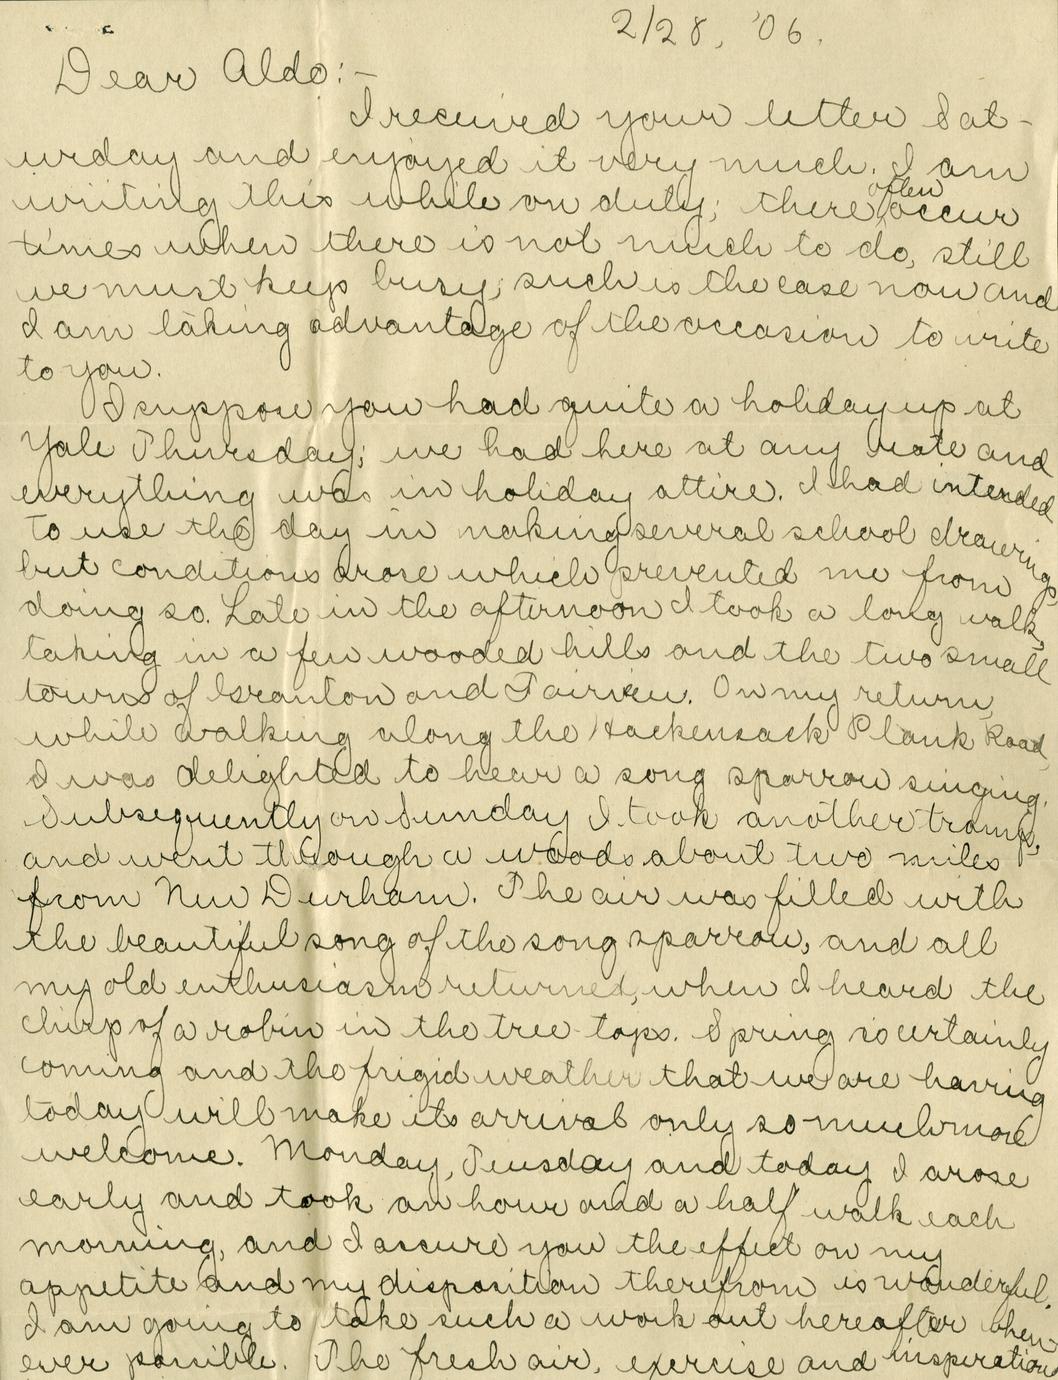 2/28, '06.
Dear Aldo:—
I received your letter Sat-
urday and enjoyed it very much. I am
writing this while on duty; there often occur
times when there is not much to do, still
we must keep busy; such is the case now and
I am taking advantage of the occasion to write
to you.
I suppose you had quite a holiday up at
Yale Thursday; we had here at any rate and
everything was in holiday attire. I had intended
to use the day in making several school drawings,
but conditions arose which prevented me from
doing so. Late in the afternoon I took a long walk,
taking in a few wooded hills and the two small
towns of Granton and Fairview. On my return,
while walking along the Hackensack Plank Road,
I was delighted to hear a song sparrow singing.
Subsequently on Sunday I took another tramp,
and went through a woods about two miles
from New Durham. The air was filled with
the beautiful song of the song sparrow, and all
my old enthusiasm returned, when I heard the
chirp of a robin in the tree tops. Spring is certainly
coming and the frigid weather that we are having
today will make its arrival only so much more
welcome. Monday, Tuesday and today I arose
early and took an hour and a half walk each
morning, and I assure you the effect on my
appetite and my disposition therefrom is wonderful.
I am going to take such a work out hereafter when
ever possible. The fresh air, exercise and inspiration